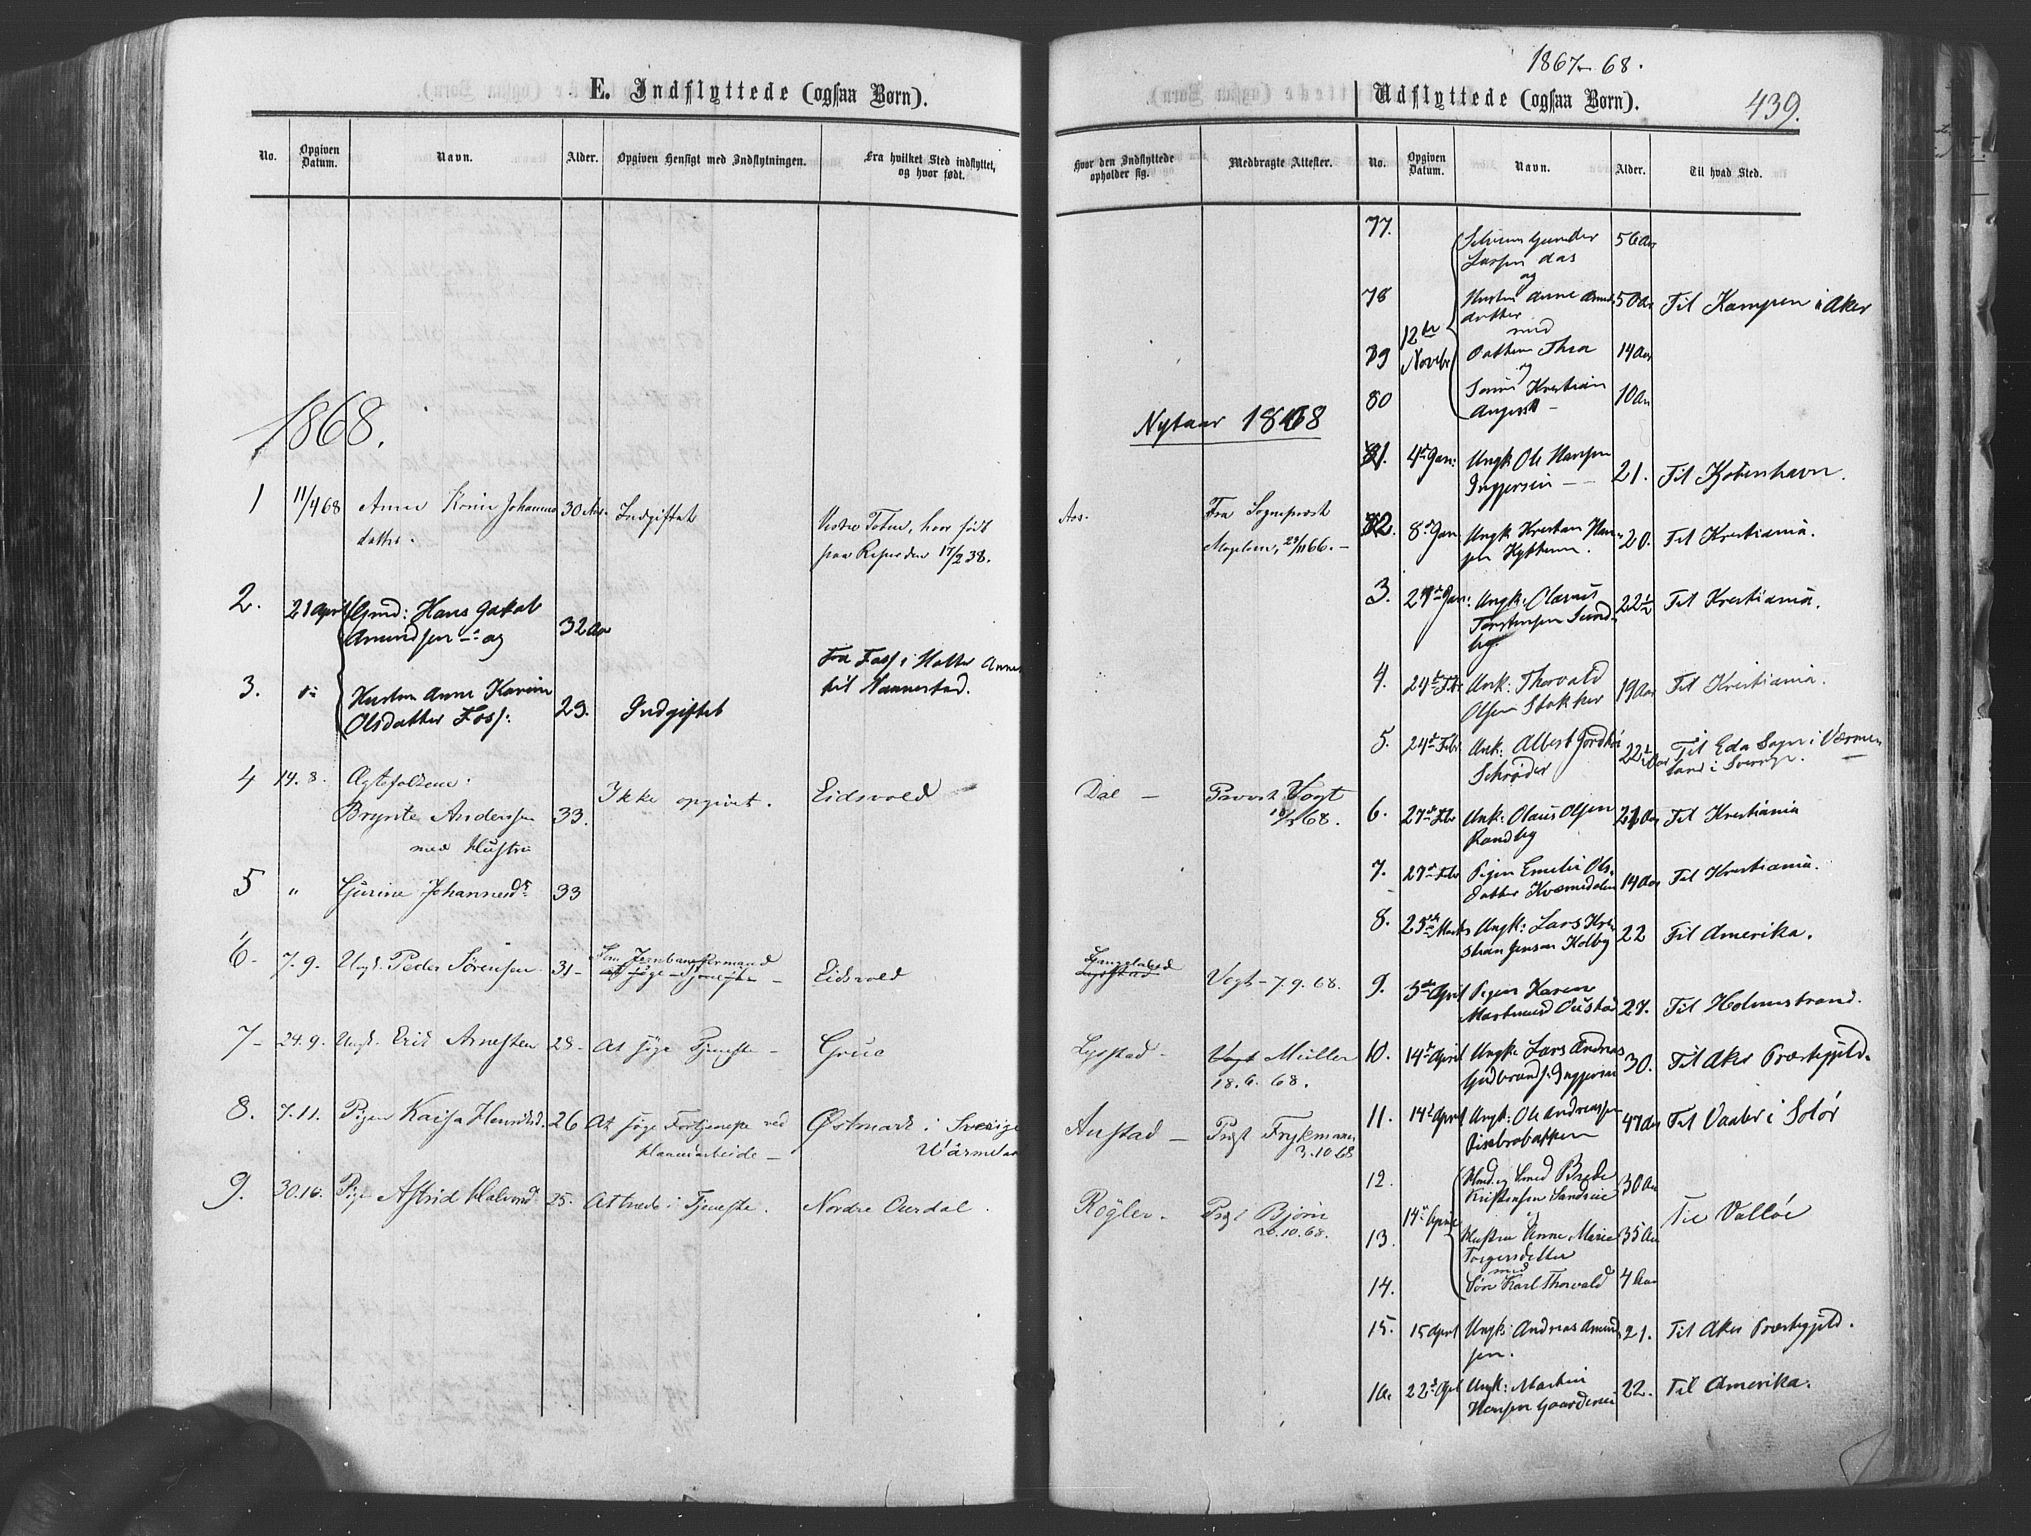 E. Indflyttede (ogsaa Børn).
No.
Opgiven Datum.
Navn.
Alder.
Opgiven Hensigt med Indflytningen.
Fra hvilket Sted indflyttet, og hvor født.
1868.
1 11/4 68 Anne Johannes 30 Aar. Indgiftet Vestre Toten, hvor født
datter. paa 17/2 38.
2. 21 April Gmd: Hans Jakob
Amundsen og 32 Aar
Fra Foss i Holter Annex
3. Hustru Anne Karine til Nannestad.
Olsdatter Foss: 29. Indgiftet
4 14. 8. Ægtefolkene Ikke opgivet. Eidsvold
Brynte Andersen 33.
med Hustru
5 " Gurine Johannesdr 33
6- 7. 9. Ungk. Peder Sørensen 31- Som Jernbaneformand
at søge Tjeneste - Eidsvold
7- 24. 9. Ungk. Erik Arnesen 28- At søge Tjeneste - Grue
8. 7. 11. Pigen Kaisa Henriksd. 26 At søge Fortjeneste ved Østmark i Sverige
Haandarbeide - Wärmeland
9. 30. 10. Pige Astrid Halvorsd 25. At træde i Tjeneste. Nordre Ourdal.
1867-68.
Udflyttede (ogsaa Børn).
439.
Hvor den Indflyttede opholder sig.
Medbragte Attester.
No.
Opgiven Datum.
Navn.
Alder.
Til hvad Sted.
Nytaar 1868
Aas. Fra Sogneprest
23/11 66. -
Dal - Provst Vogt
68.
Lysstad
Vogt - 7. 9. 68.
Lysstad - Vogt Müller
18. 6. 68.
Austad - Prgst Frykmann
3. 10 68
Røgler. Prgst Bjørn
26. 10. 68.
77. Gunder 56 Aar
Larsen
og
78 Hustru Anne Amunds 50 Aar Til Kampen i Aker
datter
12te Novbr med
79 Datteren Thea 14 Aar
og
80 Sønnen Kristian 10 Aar
August -
81. 4de Jan: Ungk Ole Hansen
Inggjersein - - 21. Til Kjøbenhavn.
82. 8de Jan Ungk Kristian Han-
sen 20. Til Kristiania.
3. Jan: Ungk: Olavus 22½ Til Kristiania.
Torstensen Sund-
by.
4. 24de Febr Unk: Thorvald 19 Aar Til Kristiania.
Olsen Stokker
5. 24de Febr Unk: Albert 22½ Aar Til Eda Sogn i Værme
Schrøder land i Sverige.
6. 27de Febr Unk: Olaus Olsen 21 Aar Til Kristiania
Randby
7. 27de Febr Pigen Emilie Ols- 14 Aar Til Kristiania.
datter
8. 25de Marts Ungk: Lars Kri- 22 Til Amerika.
stian Jensen Kolby
9. 3de April Pigen Karen 27. Til Holmestrand.
10. 14de April Ungk: Lars Andreas 30. Til Aker Præstegjeld.
Gudbrands. Inggjersein
11. 14de April Ungk: Ole Andreassen 47 Aar Til Vaaler i Solør
12. Smed 30 Aar
Kristensen
14de April Til Valløe
13. Hustru Anne Marie 35 Aar
Torgersdatter
med
14. Søn Karl Thorvald 4 Aar
15. 15 April Ungk: Andreas Amund 21. Til Aker Præstegjeld.
sen.
16. 22de April Ungk: Martin 22. Til Amerika.
Hansen